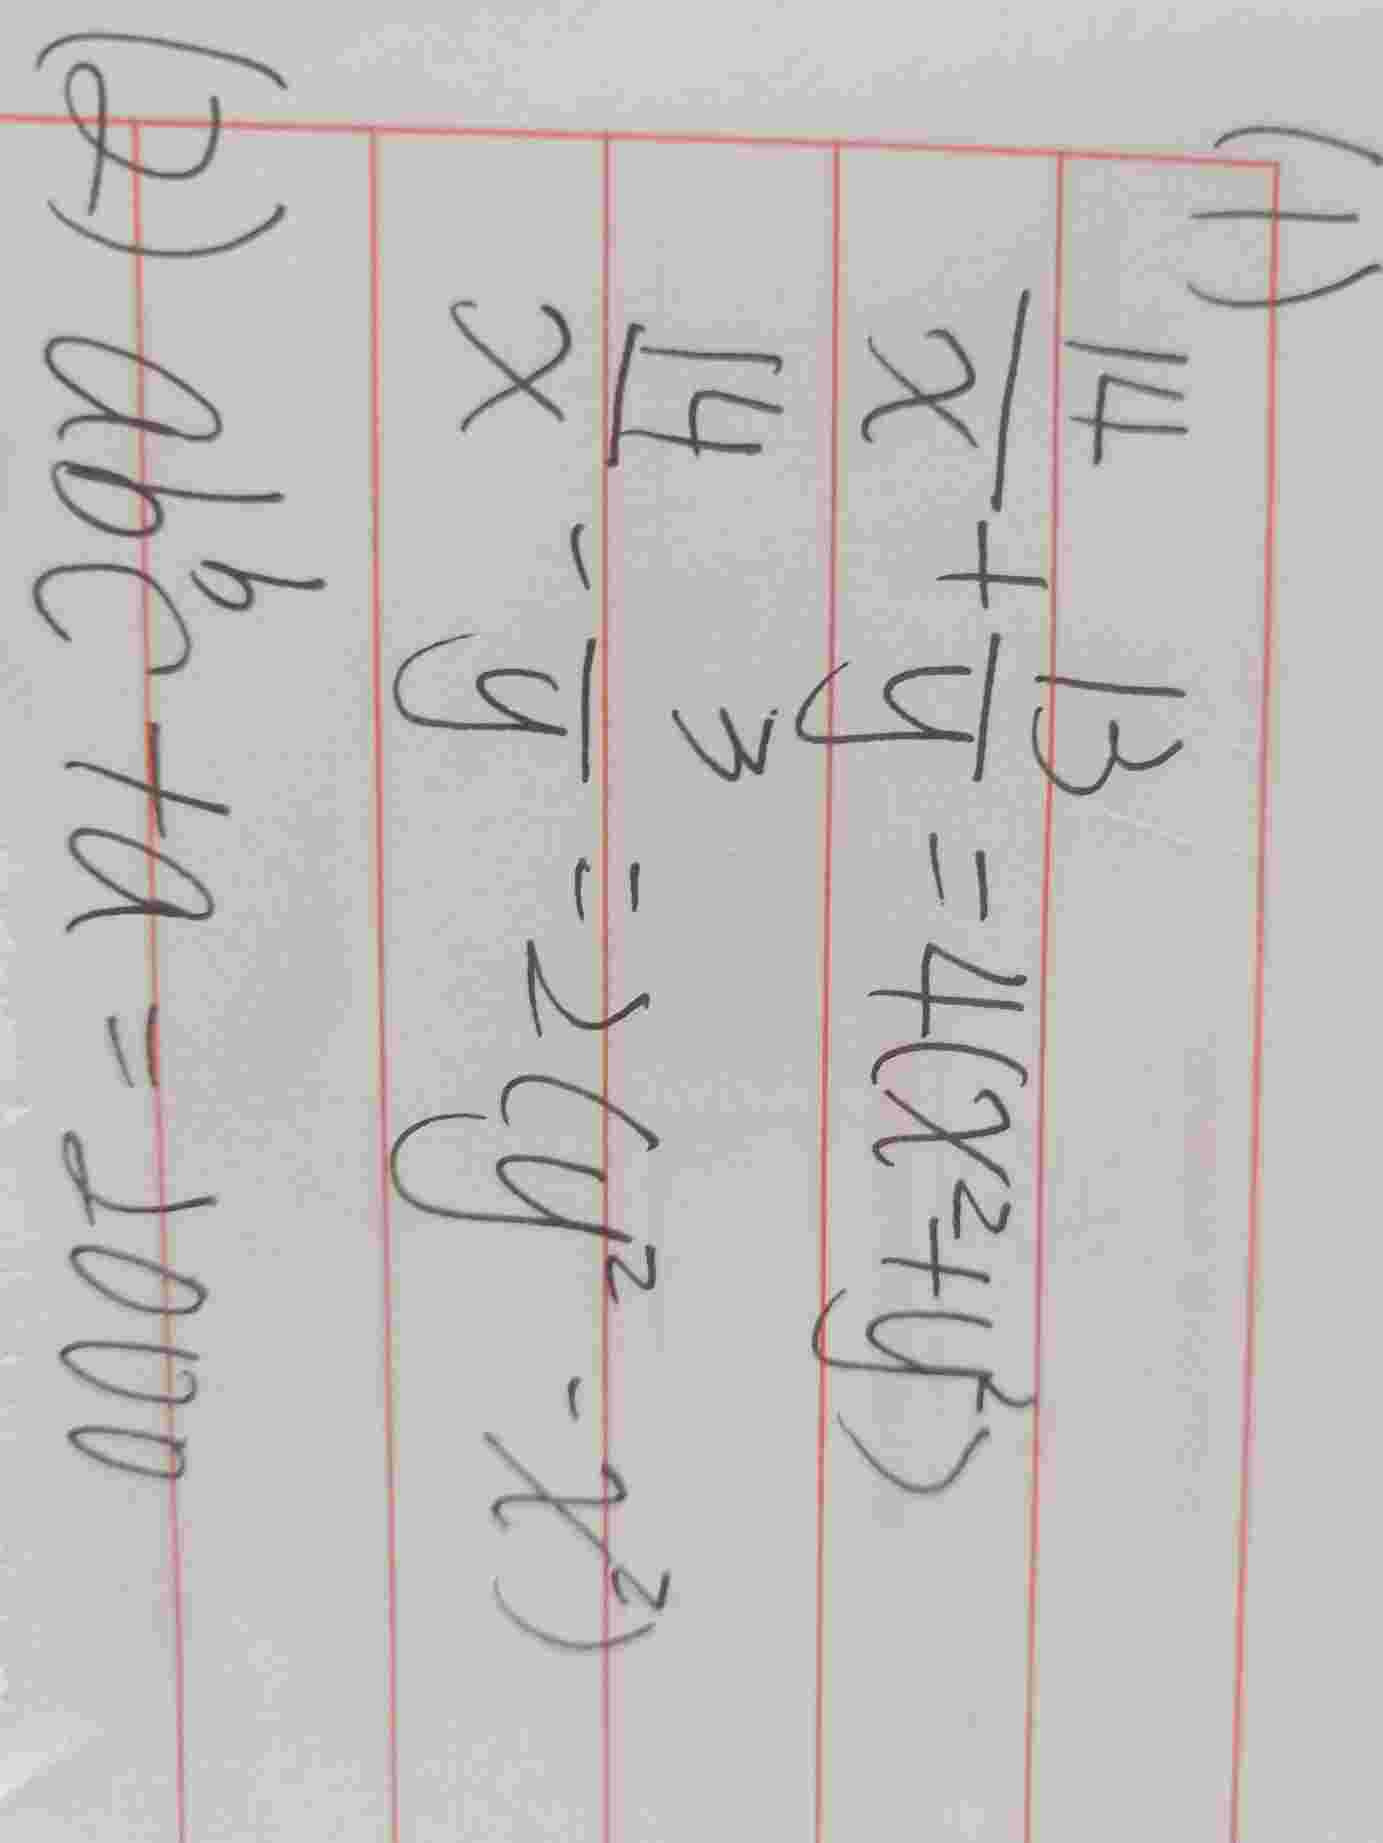 (1)
14/x + 13/y = 4(x²+y²)
14/x - 3/y = 2(y² - x²)
(2) abᵇc + a = 1000